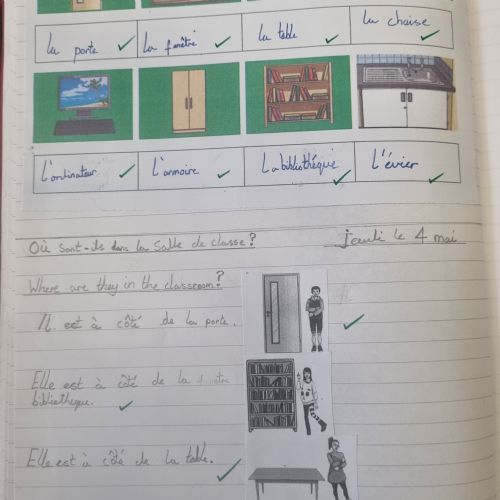 la porte
la fenêtre
la table
la chaise
L'ordinateur
L'armoire
La bibliothéque
L'évier
Où sont-ils dans la Salle de classe?
jeudi le 4 mai
Where are they in the classroom?
Il est à côté de la porte.
Elle est à côté de la
bibliotheque.
Elle est à côté de la table.